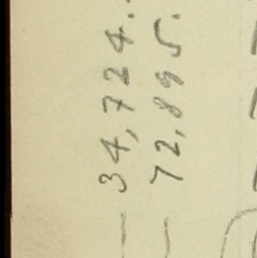 34,724.
72,895.